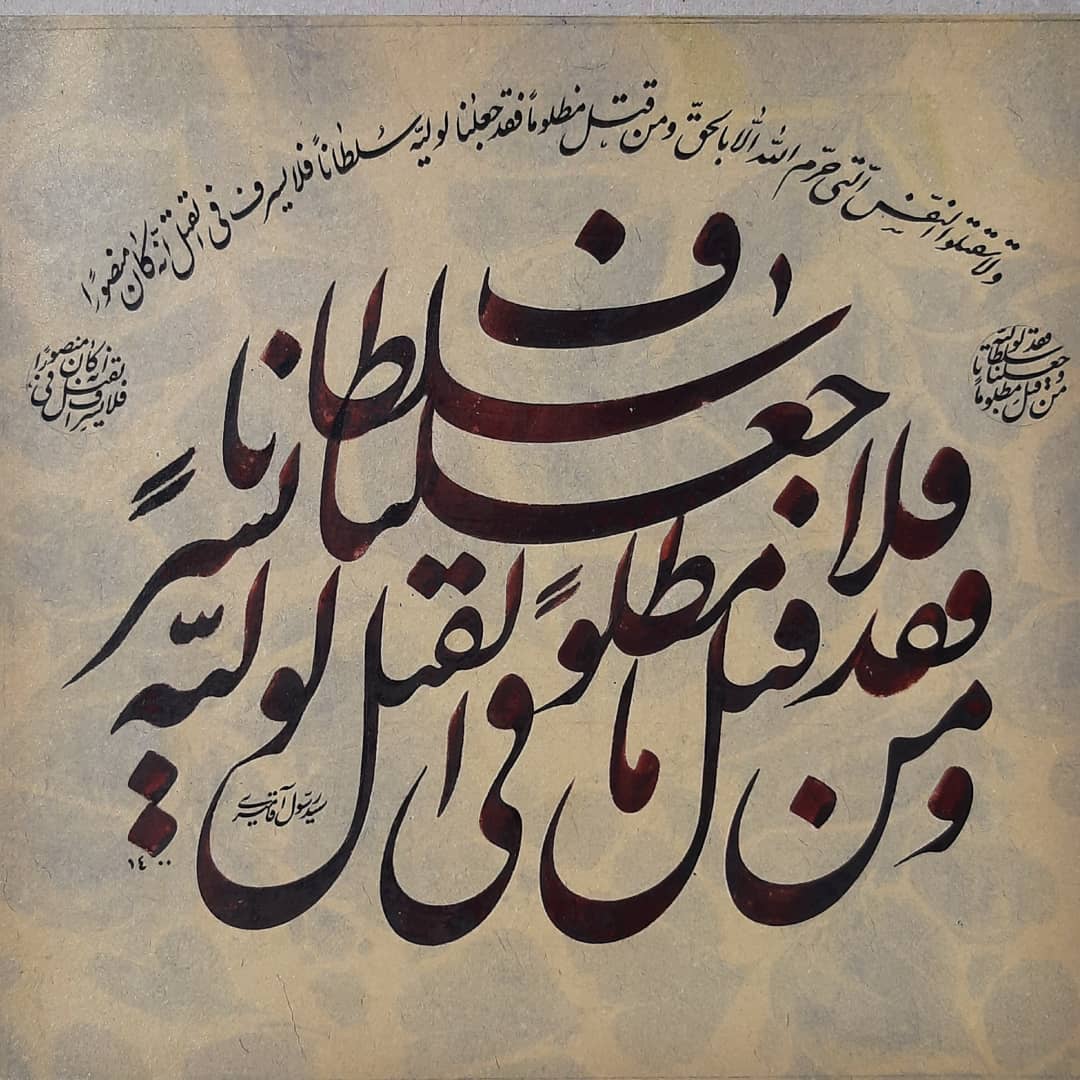 ولا تقتلوا النفس الّتی حرّم الله الّا بالحقّ ومن قتل مظلوماً فقد جعلنا لولیّه سلطاناً فلا یسرف فی القتل انّه کان منصورًا
ومن قتل مظلوماً فقد جعلنا لولیه سلطانا
فلا یسرف فی القتل انه کان منصورًا
ومن قتل مظلوماً فقد جعلنا لولیّه سلطاناً فلا یسرف فی القتل
سید رسول
١٤٠٠